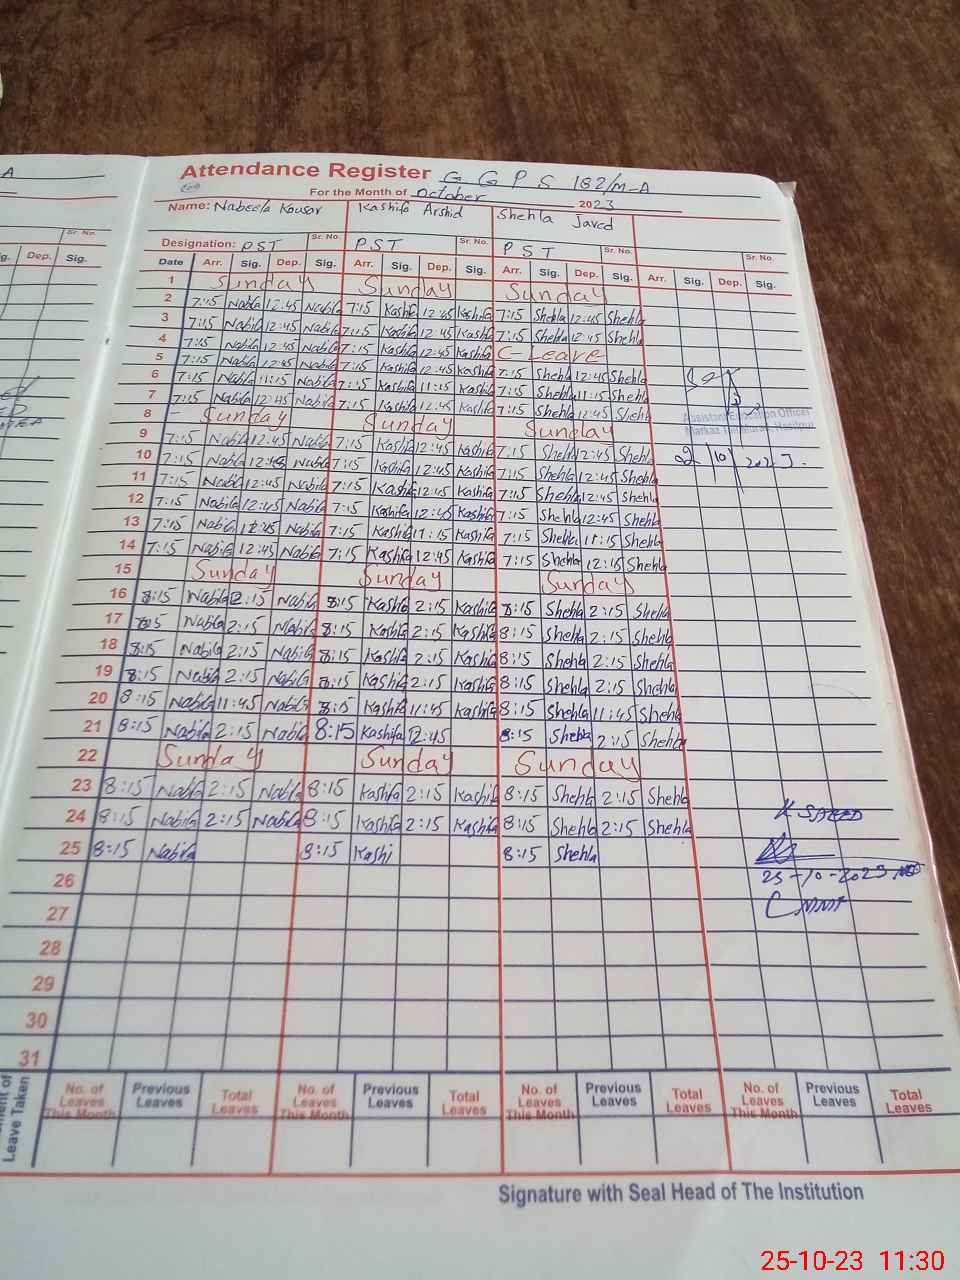 A
Attendance Register G G P S 182/M-A
For the Month of October 2023
Name: Nabeela Kousar Kashifa Arshid Shehla Javed
Sr. No.
Designation: PST Sr. No. PST Sr. No. PST Sr. No. Sr. No.
Dep. Sig.
Date Arr. Sig. Dep. Sig. Arr. Sig. Dep. Sig. Arr. Sig. Dep. Sig. Arr. Sig. Dep. Sig.
1 Sunday Sunday Sunday
2 7:15 Nabila 12:45 Nabila 7:15 Kashifa 12:45 Kashifa 7:15 Shehla 12:45 Shehla
3 7:15 Nabila 12:45 Nabila 7:15 Kashifa 12:45 Kashifa 7:15 Shehla 12:45 Shehla
4 7:15 Nabila 12:45 Nabila 7:15 Kashifa 12:45 Kashifa C-Leave
5 7:15 Nabila 12:45 Nabila 7:15 Kashifa 12:45 Kashifa 7:15 Shehla 12:45 Shehla
6 7:15 Nabila 11:15 Nabila 7:15 Kashifa 11:15 Kashifa 7:15 Shehla 11:15 Shehla
7 7:15 Nabila 12:45 Nabila 7:15 Kashifa 12:45 Kashifa 7:15 Shehla 12:45 Shehla
Assistant Education Officer
8 Sunday Sunday Sunday
9 7:15 Nabila 12:45 Nabila 7:15 Kashifa 12:45 Kashifa 7:15 Shehla 12:45 Shehla
10 7:15 Nabila 12:45 Nabila 7:15 Kashifa 12:45 Kashifa 7:15 Shehla 12:45 Shehla
11 7:15 Nabila 12:45 Nabila 7:15 Kashifa 12:45 Kashifa 7:15 Shehla 12:45 Shehla
12 7:15 Nabila 12:45 Nabila 7:15 Kashifa 12:45 Kashifa 7:15 Shehla 12:45 Shehla
13 7:15 Nabila Nabila 7:15 Kashifa 11:15 Kashifa 7:15 Shehla 11:15 Shehla
14 7:15 Nabila 12:45 Nabila 7:15 Kashifa 12:45 Kashifa 7:15 Shehla 12:15 Shehla
15 Sunday Sunday Sunday
16 8:15 Nabila 2:15 Nabila 8:15 Kashifa 2:15 Kashifa 8:15 Shehla 2:15 Shehla
17 8:15 Nabila 2:15 Nabila 8:15 Kashifa 2:15 Kashifa 8:15 Shehla 2:15 Shehla
18 8:15 Nabila 2:15 Nabila 8:15 Kashifa 2:15 Kashifa 8:15 Shehla 2:15 Shehla
19 8:15 Nabila 2:15 Nabila 8:15 Kashifa 2:15 Kashifa 8:15 Shehla 2:15 Shehla
20 8:15 Nabila 11:45 Nabila 8:15 Kashifa 11:45 Kashifa 8:15 Shehla 11:45 Shehla
21 8:15 Nabila 2:15 Nabila 8:15 Kashifa 12:45 8:15 Shehla 2:15 Shehla
22 Sunday Sunday Sunday
23 8:15 Nabila 2:15 Nabila 8:15 Kashifa 2:15 Kashifa 8:15 Shehla 2:15 Shehla
24 8:15 Nabila 2:15 Nabila 8:15 Kashifa 2:15 Kashifa 8:15 Shehla 2:15 Shehla
25 8:15 Nabila 8:15 Kashi 8:15 Shehla
26 25-10-2023
27
28
29
30
31
Leave Taken
No. of Leaves This Month Previous Leaves Total Leaves No. of Leaves This Month Previous Leaves Total Leaves No. of Leaves This Month Previous Leaves Total Leaves No. of Leaves This Month Previous Leaves Total Leaves
Signature with Seal Head of The Institution
25-10-23 11:30